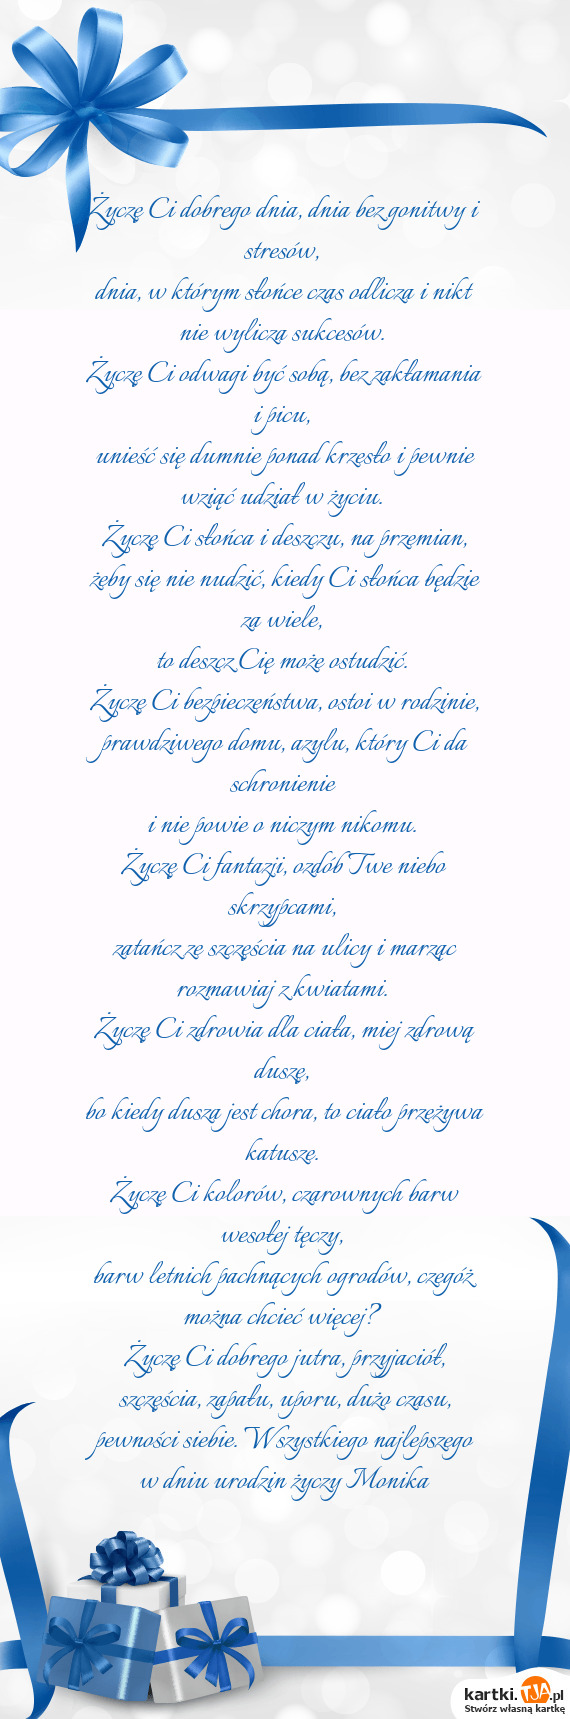 Życzę Ci dobrego dnia, dnia bez gonitwy i
stresów,
dnia, w którym słońce czas odlicza i nikt
nie wylicza sukcesów.
Życzę Ci odwagi być sobą, bez zakłamania
i picu,
unieść się dumnie ponad krzesło i pewnie
wziąć udział w życiu.
Życzę Ci słońca i deszczu, na przemian,
żeby się nie nudzić, kiedy Ci słońca będzie
za wiele,
to deszcz Cię może ostudzić.
Życzę Ci bezpieczeństwa, ostoi w rodzinie,
prawdziwego domu, azylu, który Ci da
schronienie
i nie powie o niczym nikomu.
Życzę Ci fantazji, ozdób Twe niebo
skrzypcami,
zatańcz ze szczęścia na ulicy i marząc
rozmawiaj z kwiatami.
Życzę Ci zdrowia dla ciała, miej zdrową
duszę,
bo kiedy dusza jest chora, to ciało przeżywa
katusze.
Życzę Ci kolorów, czarownych barw
wesołej tęczy,
barw letnich pachnących ogrodów, czegóż
można chcieć więcej?
Życzę Ci dobrego jutra, przyjaciół,
szczęścia, zapału, uporu, dużo czasu,
pewności siebie. Wszystkiego najlepszego
w dniu urodzin życzy Monika
kartki.TJA.pl
Stwórz własną kartkę